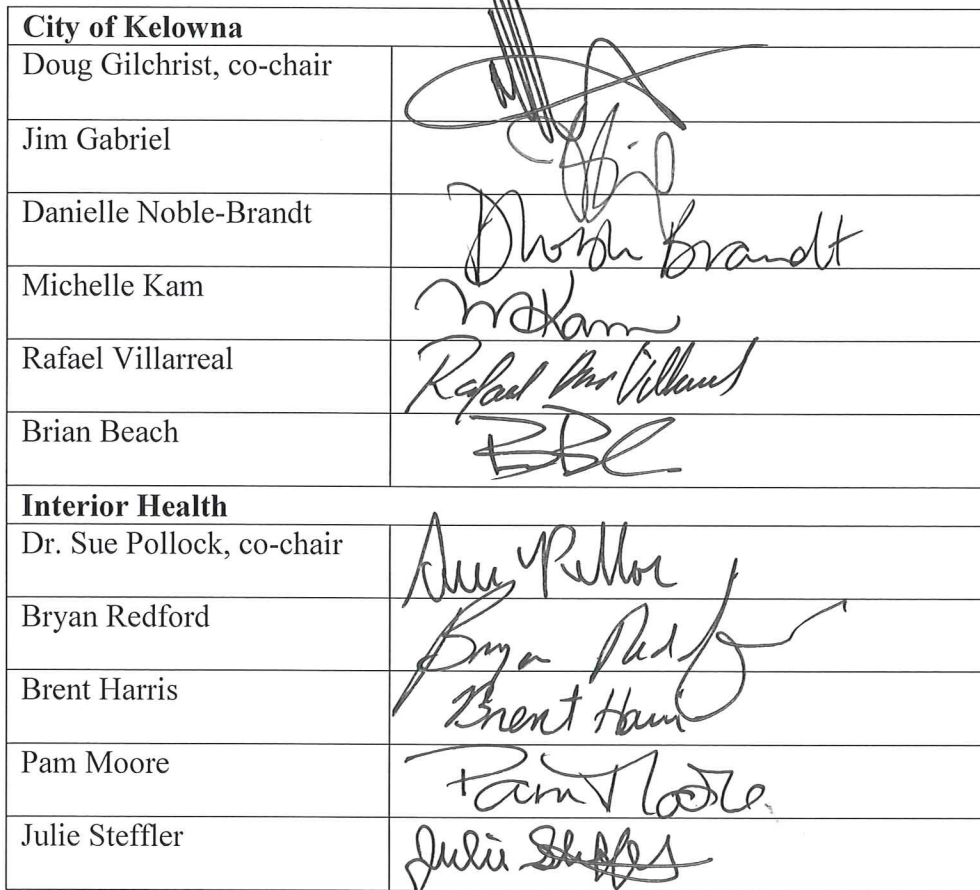 City of Kelowna
Doug Gilchrist, co-chair
Jim Gabriel
Danielle Noble-Brandt
Brandt
Michelle Kam
MKam
Rafael Villarreal
Rafael Villarreal
Brian Beach
Interior Health
Dr. Sue Pollock, co-chair
Bryan Redford
Bryan Redf
Brent Harris
Brent Harris
Pam Moore
Pam Moore
Julie Steffler
Julie Steffler